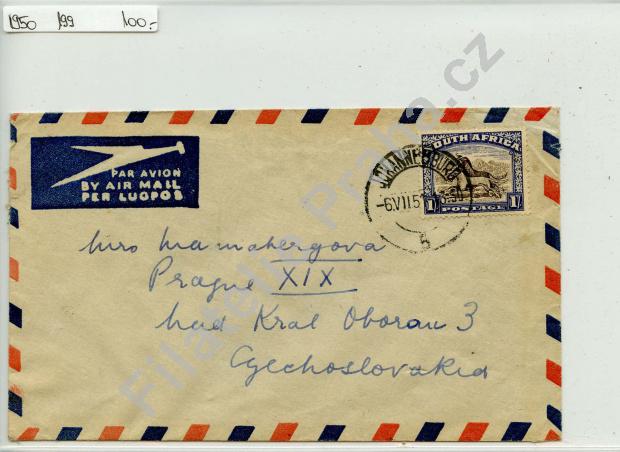 1950 199 100.-
PAR AVION
BY AIR MAIL
PER LUGPOS
JOHANNESBURG
-6.VII.5
5
SOUTH AFRICA
1/ POSTAGE 1/
Prague XIX
nad Kral Oborou 3
Czechoslovakia
Filatelie Praha.cz